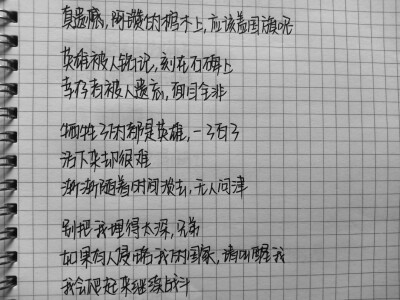 真遗憾,阿赞的棺木上,应该盖国旗呢
英雄被人铭记,刻在石碑上
幸存者被人遗忘,面目全非
牺牲了的都是英雄,一了百了
活下来却很难
渐渐随着时间流去,无人问津
别把我埋得太深,兄弟
如果有人侵略我的国家,请叫醒我
我会爬起来继续战斗